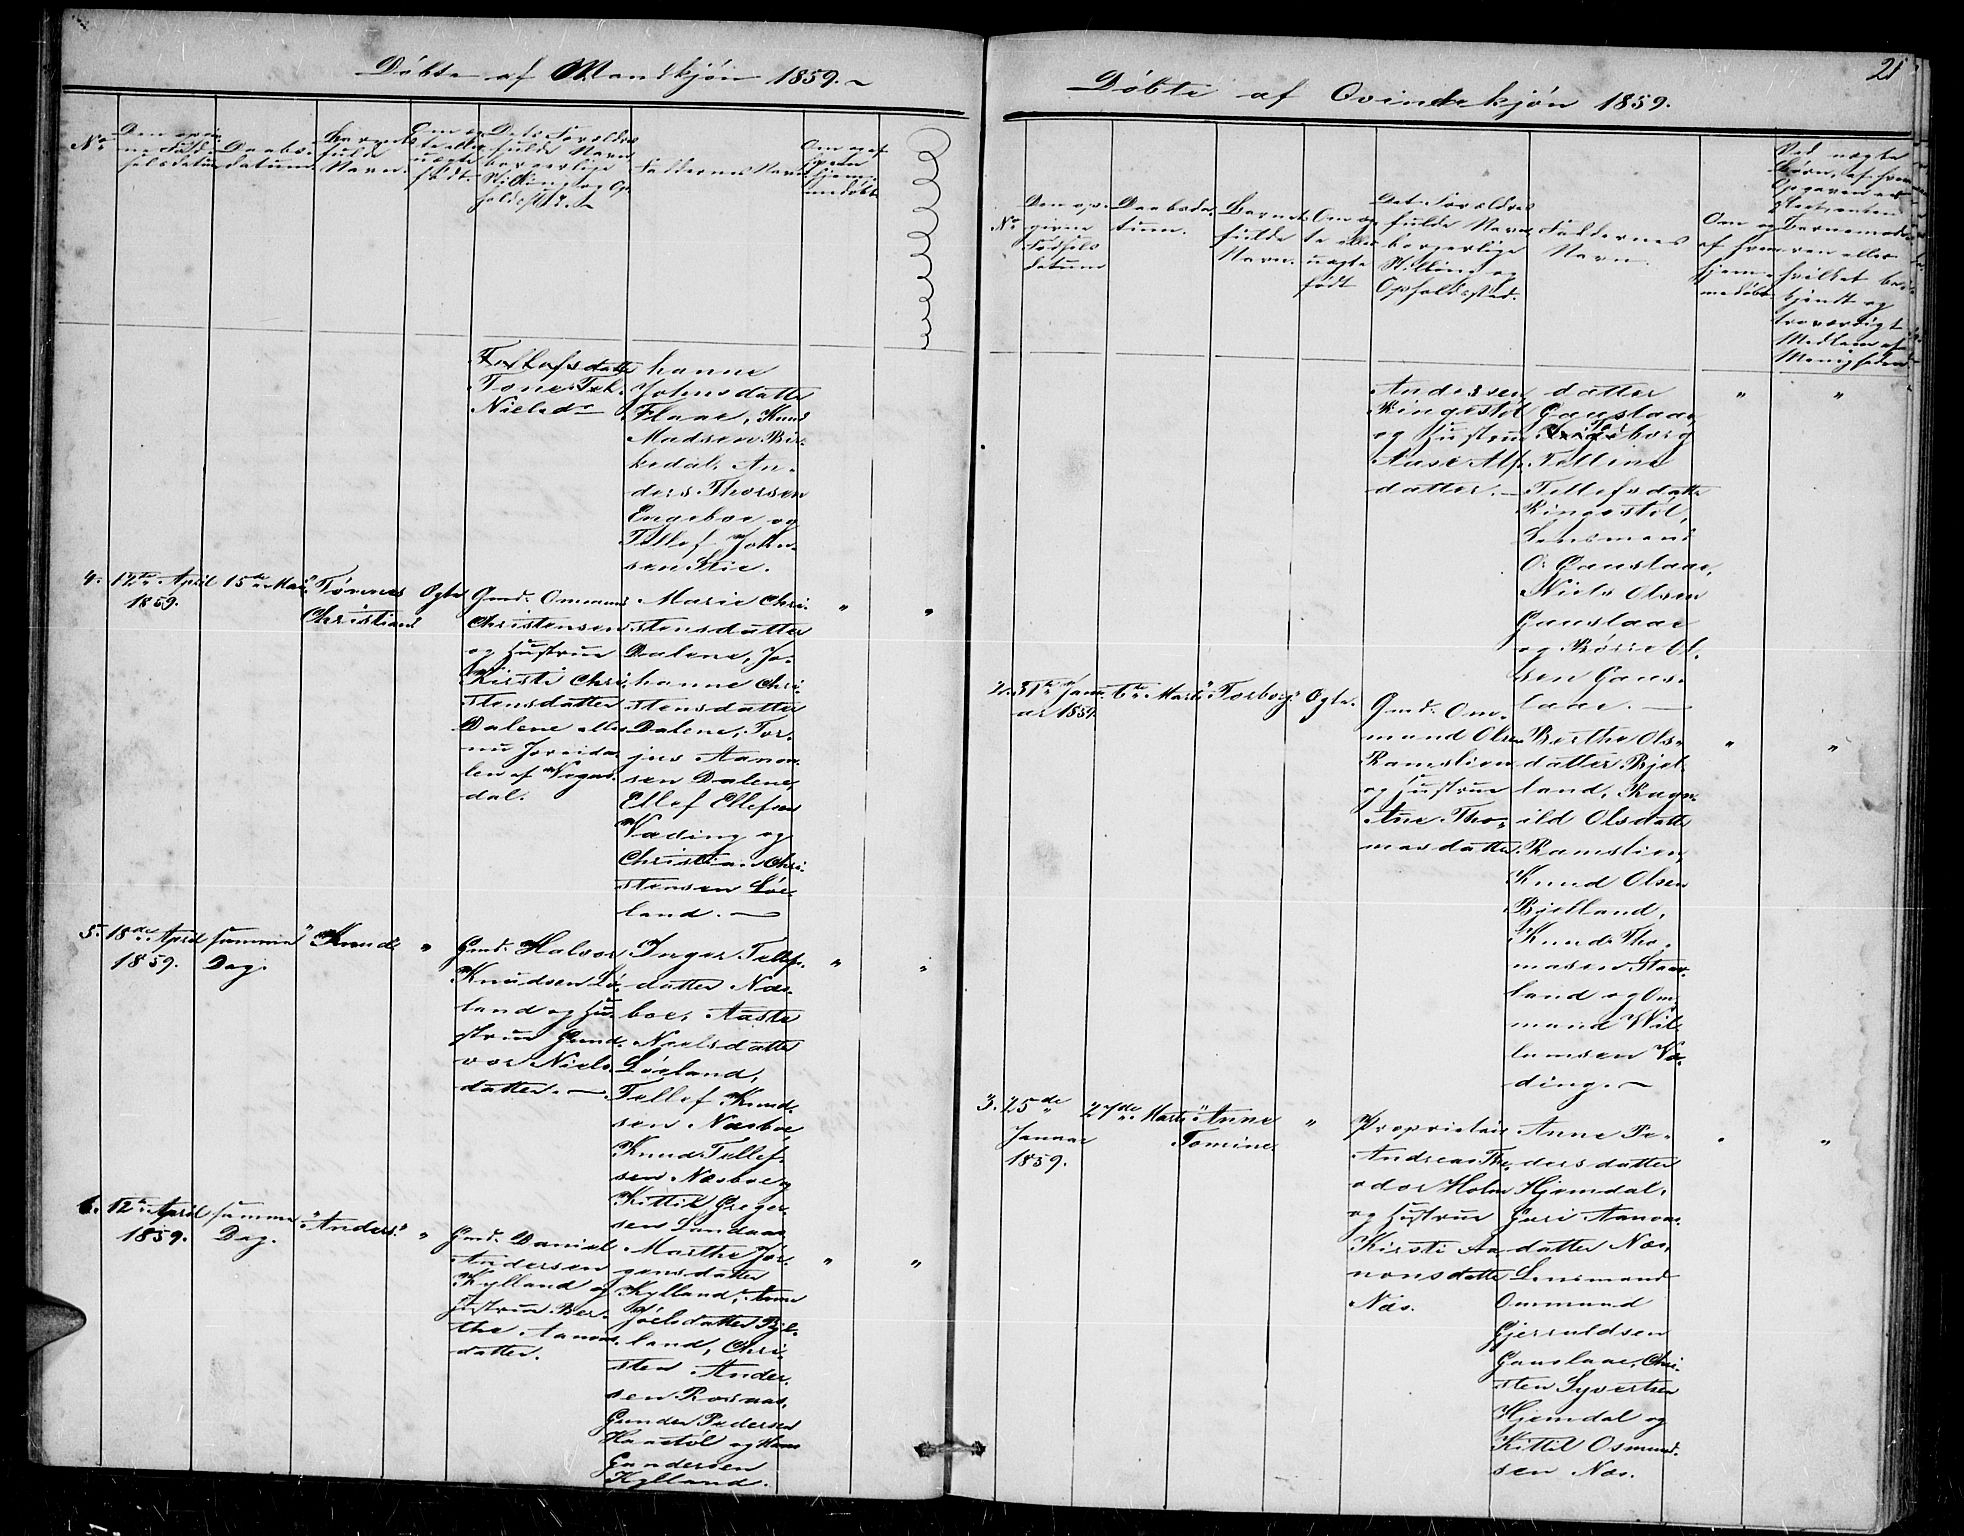 Döbte af Mandkjön 1859.
No
Den opgiv-
ne Föd-
selsdatum
Daabs-
datum
Barnets
fulde
Navn.
Om æg-
te eller
uægte
födt.
Dets Forældres
fulde Navn
borgerlige
Stilling og Op-
holdsted.
Faddernes Navn
Om og af
hvem
hjem-
medöbt
Tellefsdatter
Tone
Nielsdr
hanne
Johnsdatter
Flaae, Knud
Madsen Bir-
kedal, An-
ders Thorsen
Engeboe og
Tellef John-
sen Stie.
4. 12te April
1859.
15de Mai
Tönnes
Christian
Ægte
Gmd. Ommund
Christensen
og Hustrue
Kirsti Chri-
stensdatter
Dalene eller
Joreida-
len af Vegus-
dal.
Marie Chri-
stensdatter
Dalene, Jo-
hanne Chri-
stensdatter
Dalene, Tor-
jus Aanon-
sen Dalene,
Ellef Ellefsen
Væding og
Christian Chri-
stensen Löe-
land.
" "
5. 18de April
1859.
samme
Dag.
Knud
"
Gmd. Halvor
Knudsen Lö-
land og Hu-
strue Gund-
vor Niels-
datter.
Inger Tellefs-
datter Næs-
boe, Aaste
Nielsdatter
Löeland,
Tellef Knud-
sen Næsboe,
Knud Tellef-
sen Næsboe og
Kittil Greger-
sen Landaas
" "
6. 12te April
1859.
samme
Dag.
Anders.
"
Gmd. Daniel
Andersen
Kylland og
Hustrue Ber-
the Aanons-
datter.
Marthe Jör-
gensdatter
Kylland, Anne
Joelsdatter Bjel-
land, Chri-
sten Ander-
sen Rosnæs,
Gunder Pedersen
Haustöl og Hans
Gundersen
Kylland.
" "
21
Döbte af Qvindekjön 1859.
No
Den op-
givne
Födsels
datum
Daabsda-
tum.
Barnets
fulde
Navn.
Om æg-
te eller
uægte
födt
Dets Forældres
fulde Navn,
borgerlige
Stilling og
Opholdssted.
Faddernes
Navn.
Om og
af hvem
hjem-
medöbt
Ved uægte
Börn, af hvem
Opgaven er
attesteret, enten
Barnemode-
ren eller
hvilket be-
kjendt og
troværdigt
Medlem af
Menigheden
Andersen
Ringestöl
og Hustrue
Aase Alfs-
datter.
datter
Gauslaae,
Ingeborg
Telline
Tellefsdatter
Ringestöl,
Lensmand
O. Gauslaae,
Niels Olsen
Gauslaae
og Börre Ol-
sen Gaus-
laae.
" "
2. 31te Janu-
ar 1859
6te Marts
Torborg
Ægte.
Gmd. Om-
mund Olsen
Ramslien
og Hustrue
Ane Tho-
masdatter.
Berthe Ols-
datter Bjel-
land, Ragn-
ild Olsdatter
Ramslien,
Knud Olsen
Bjelland,
Knud Tho-
masen Staur-
land og Om-
mund Wil-
lumsen Væ-
ding.
" "
3. 25de
Januar
1859.
27de Marts
Anne
Tomine.
"
Proprietair
Andreas The-
odor Holm
og Hustrue
Kirsti Aa-
nonsdatter
Næs.
Anne Pe-
dersdatter
Hjemdal,
Guri Aanons-
datter Næs,
Lensmand
Ommund
Gjeruldsen
Gauslaae, Chri-
sten Syvertsen
Hjemdal og
Kittil Osmund-
sen Næs.
" "